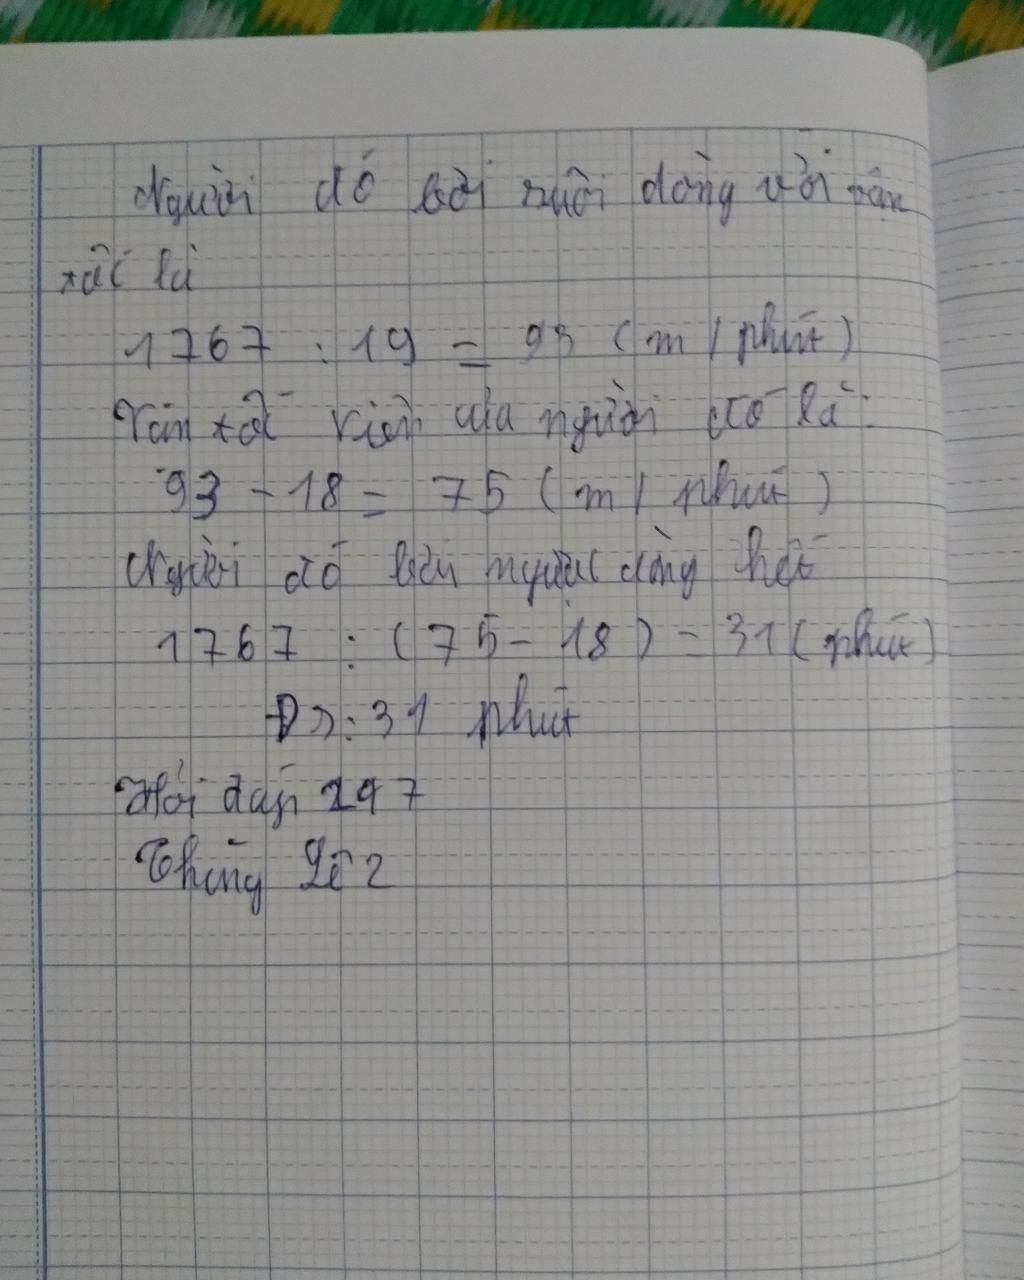 Người đó bơi xuôi dòng với vận
tốc là
1767 : 19 = 93 (m / phút)
Vận tốc riêng của người đó là :
93 - 18 = 75 (m / phút)
Người đó bơi ngược dòng hết
1767 : (75 - 18) = 31 (phút)
Đ : 31 phút
Hỏi đáp 247
Thùng 2